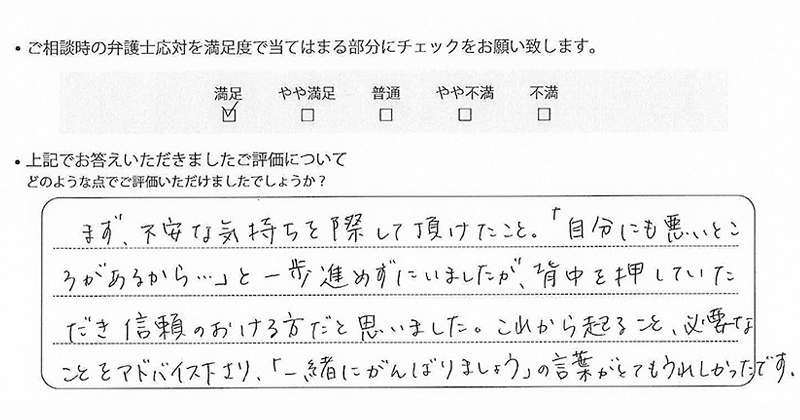 • ご相談時の弁護士応対を満足度で当てはまる部分にチェックをお願い致します。
満足 やや満足 普通 やや不満 不満
• 上記でお答えいただきましたご評価について
どのような点でご評価いただけましたでしょうか?
まず、不安な気持ちを際して頂けたこと。「自分にも悪いとこ
ろがあるから…」と一歩進めずにいましたが、背中を押していた
だき信頼のおける方だと思いました。これから起ること、必要な
ことをアドバイス下さり、「一緒にがんばりましょう」の言葉がとてもうれしかったです。